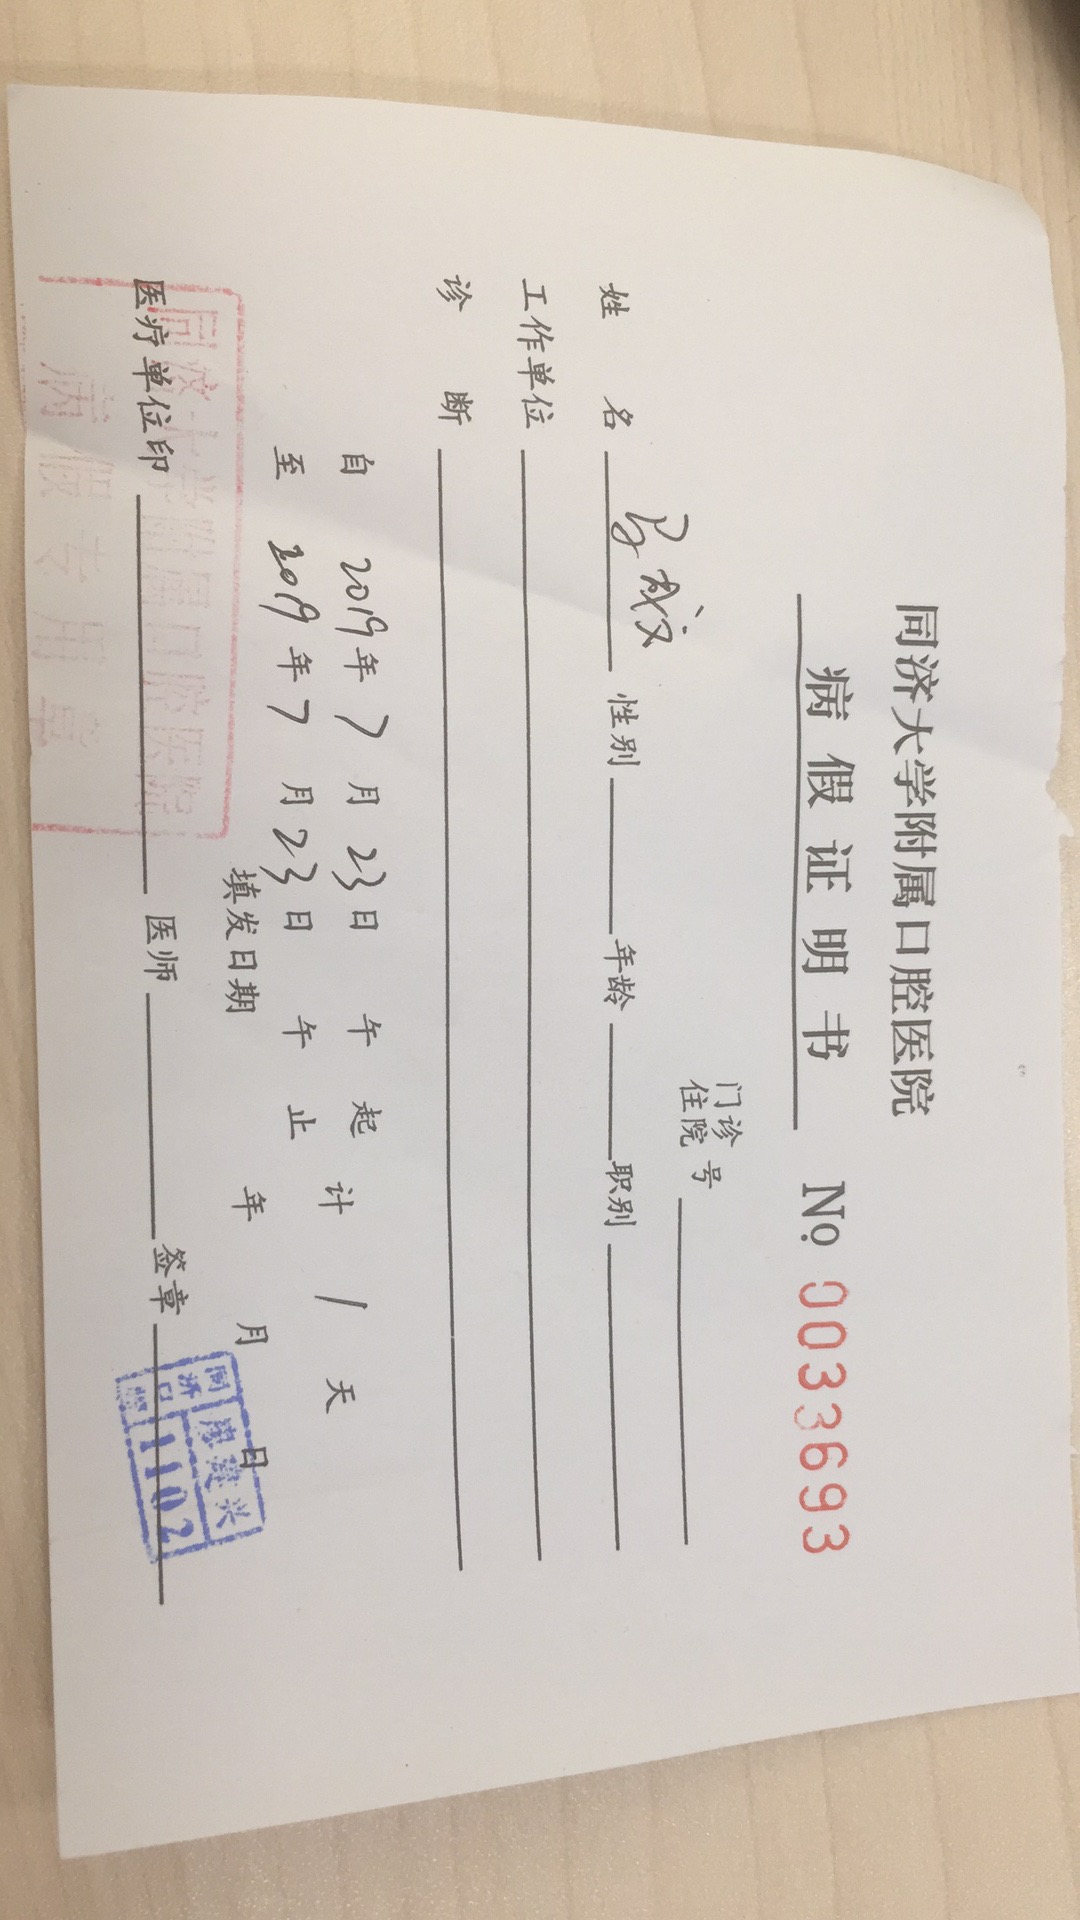 同济大学附属口腔医院
病假证明书 № 0033693
门诊
住院 号
姓 名 性别 年龄 职别
工作单位
诊 断
自 2019 年 7 月 23 日 午 起 计 1 天
至 2019 年 7 月 23 日 午 止
填发日期 年 月 日
医疗单位印 医师 签章
同济大学附属口腔医院
病假专用章
同济口腔
1102